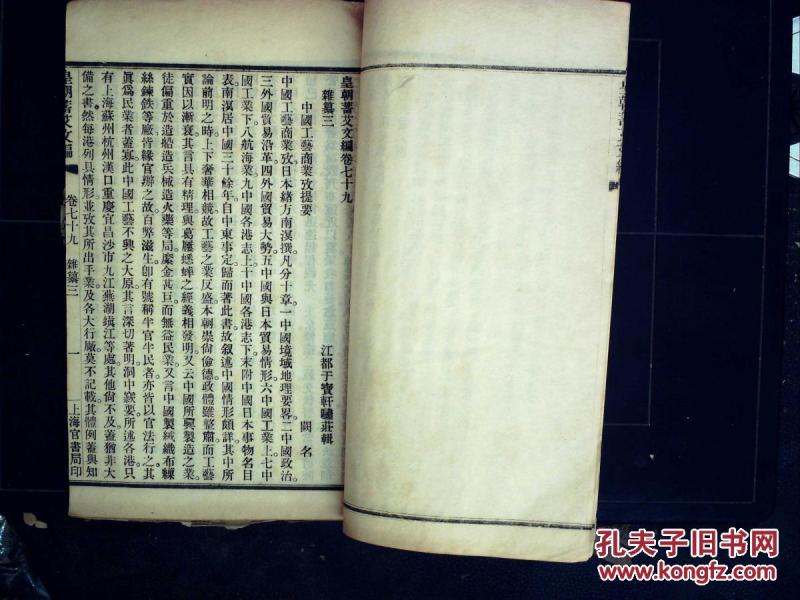 皇朝蓄艾文編卷七十九
雜纂三
江都于寶軒驌莊輯
中國工藝商業攷提要
闕名
中國工藝商業攷日本緒方南溟撰凡分十章一中國境域地理要畧二中國政治
三外國貿易沿革四外國貿易大勢五中國與日本貿易情形六中國工業上七中
國工業下八航海業九中國各港志上十中國各港志下末附中國日本事物名目
表南溟居中國三十餘年自中東事定歸而著此書故叙述中國情形頗詳其中所
論前明之時上下奢華相競故工藝之業反盛本朝崇尙儉德政體雖整肅而工藝
實因以漸衰其言具有精理與葛屨蟋蟀之經義相發明又云中國所興製造之業
徒偏重於造船造兵械造火藥等局縻金甚巨而無益民業又言中國製絨織布繅
絲鍊鉄等廠皆緣官辦之故百弊滋生卽有號稱半官半民者亦皆以官法行之其
眞爲民業者蓋寡此中國工藝不興之大原其言深切著明洞中窾要所述各港只
有上海蘇州杭州漢口重慶宜昌沙市九江蕪湖鎭江等處其他尙不及蓋猶非大
備之書然每港列具情形並攷其所出手業及各大行廠莫不記載其體例蓋與知
皇朝蓄艾文編
卷七十九 雜纂三
一
上海官書局印
孔夫子旧书网
KONGFZ.COM